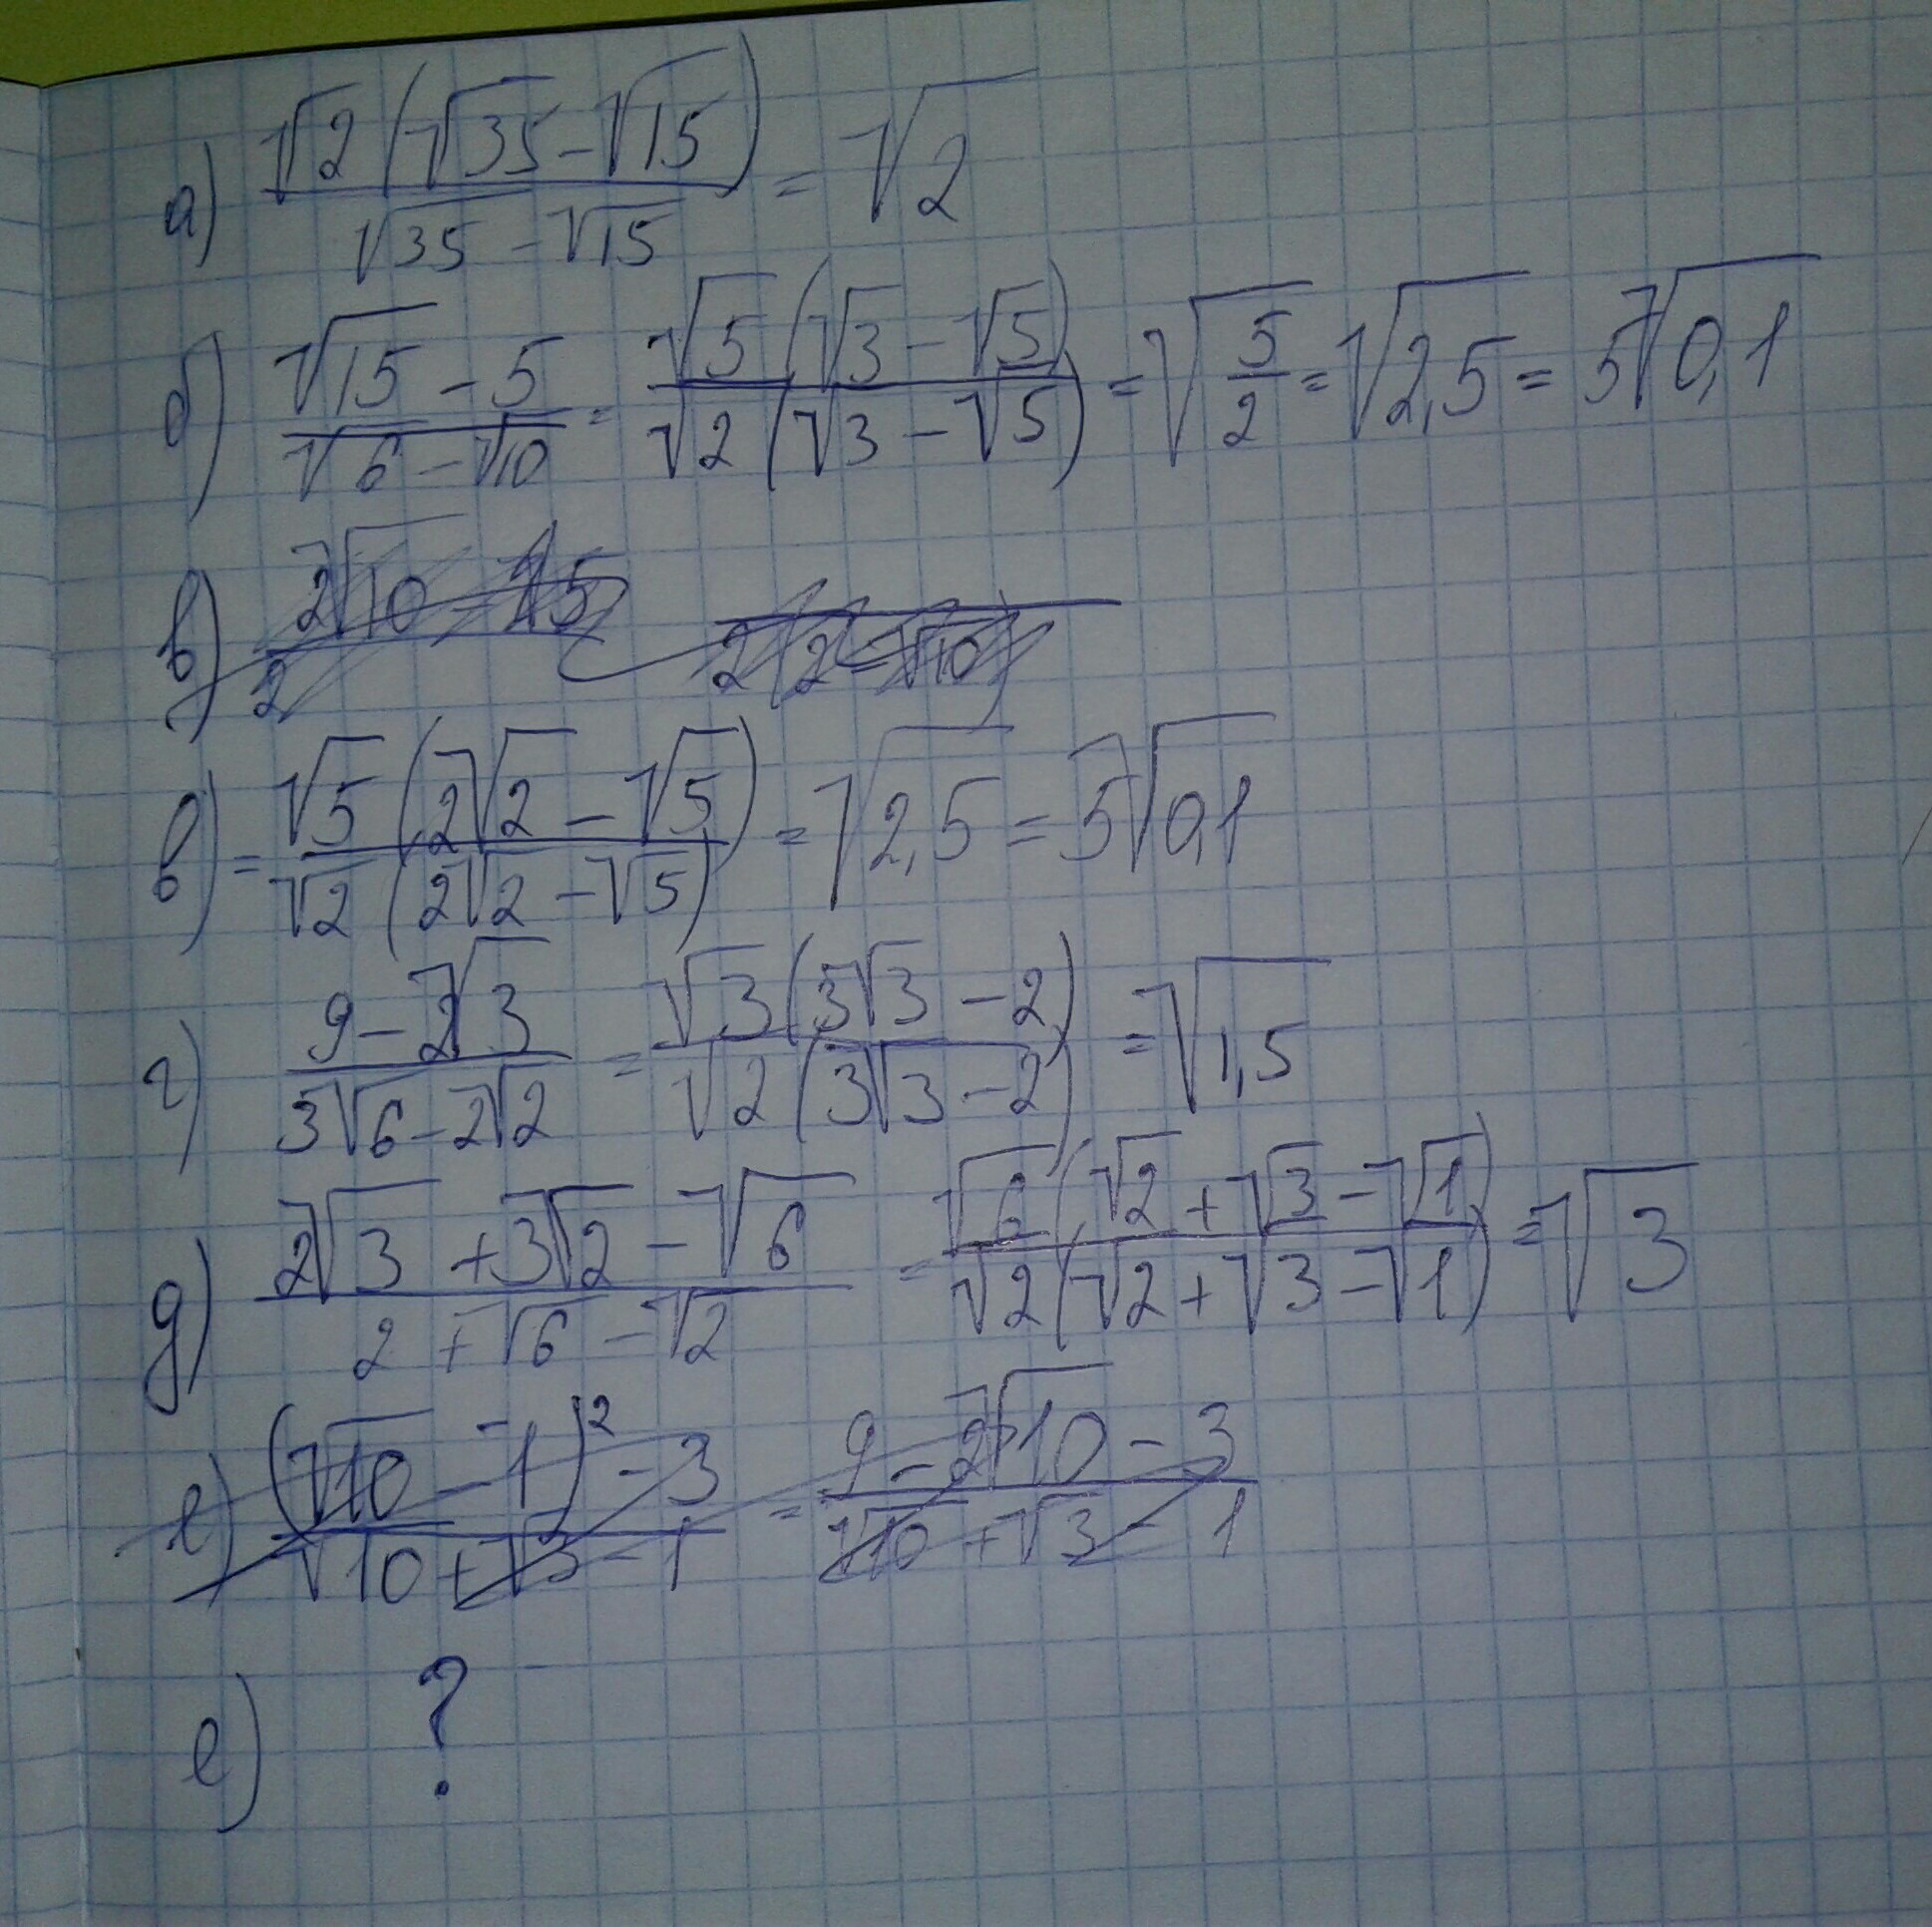 а) √2(√35-√15)/√35-√15 = √2
б) √15-5/√6-√10 = √5(√3-√5)/√2(√3-√5) = √5/2 = √2,5 = 5√0,1
в) 2√10 - 5/2 /2(2-√10)
в) = √5(2√2-√5)/√2(2√2-√5) = √2,5 = 5√0,1
г) 9-2√3/3√6-2√2 = √3(3√3-2)/√2(3√3-2) = √1,5
д) 2√3+3√2-√6/2+√6-√2 = √6(√2+√3-√1)/√2(√2+√3-√1) = √3
е) (√10-1)²-3/√10+√3-1 = 9-2√10-3/√10+√3-1
е) ?